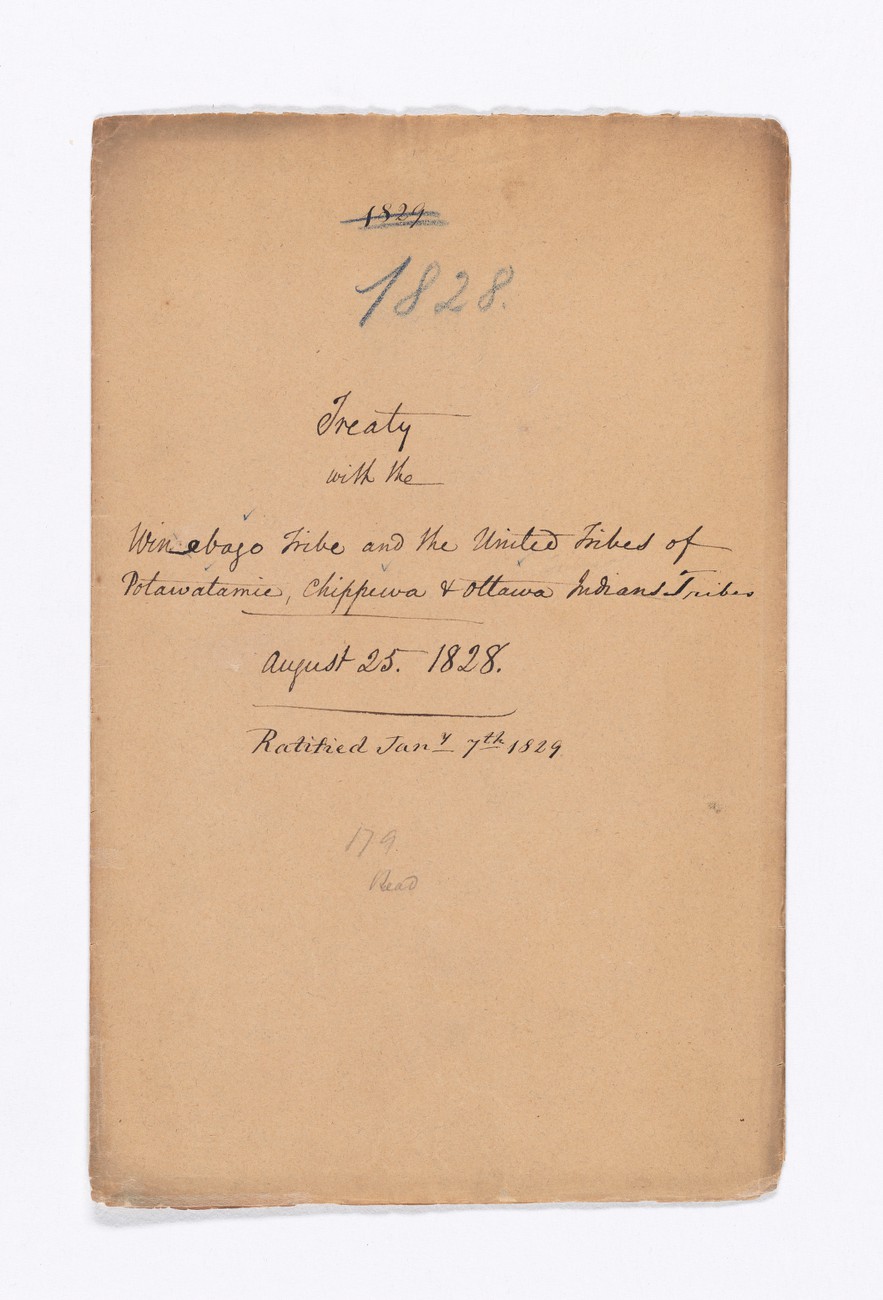 1829
1828.
Treaty
with the
Winebago Tribe and the United Tribes of
Potawatamie, Chippewa & Ottawa Indians Tribes
August 25. 1828.
Ratified Jany 7th 1829
179.
Read